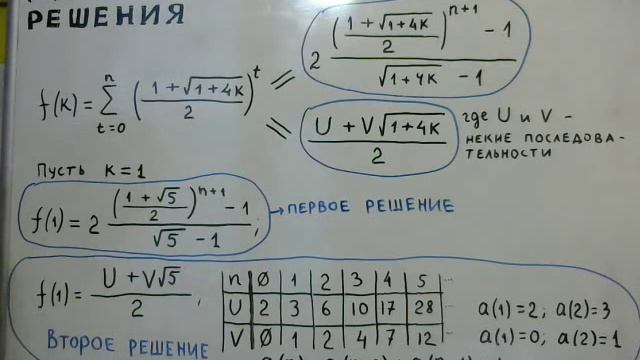 РЕШЕНИЯ
f(k) = ∑_{t=0}^{n} ((1 + √(1+4k)) / 2)^t = 2 (((1 + √(1+4k)) / 2)^{n+1} - 1) / (√(1+4k) - 1)
= (U + V√(1+4k)) / 2 где U и V -
некие последова-
тельности
Пусть k = 1
f(1) = 2 (((1 + √5) / 2)^{n+1} - 1) / (√5 - 1); → ПЕРВОЕ РЕШЕНИЕ
f(1) = (U + V√5) / 2,
n Ø 1 2 3 4 5 ...
U 2 3 6 10 17 28 ... a(1) = 2, a(2) = 3
V Ø 1 2 4 7 12 ... a(1) = 0, a(2) = 1
ВТОРОЕ РЕШЕНИЕ